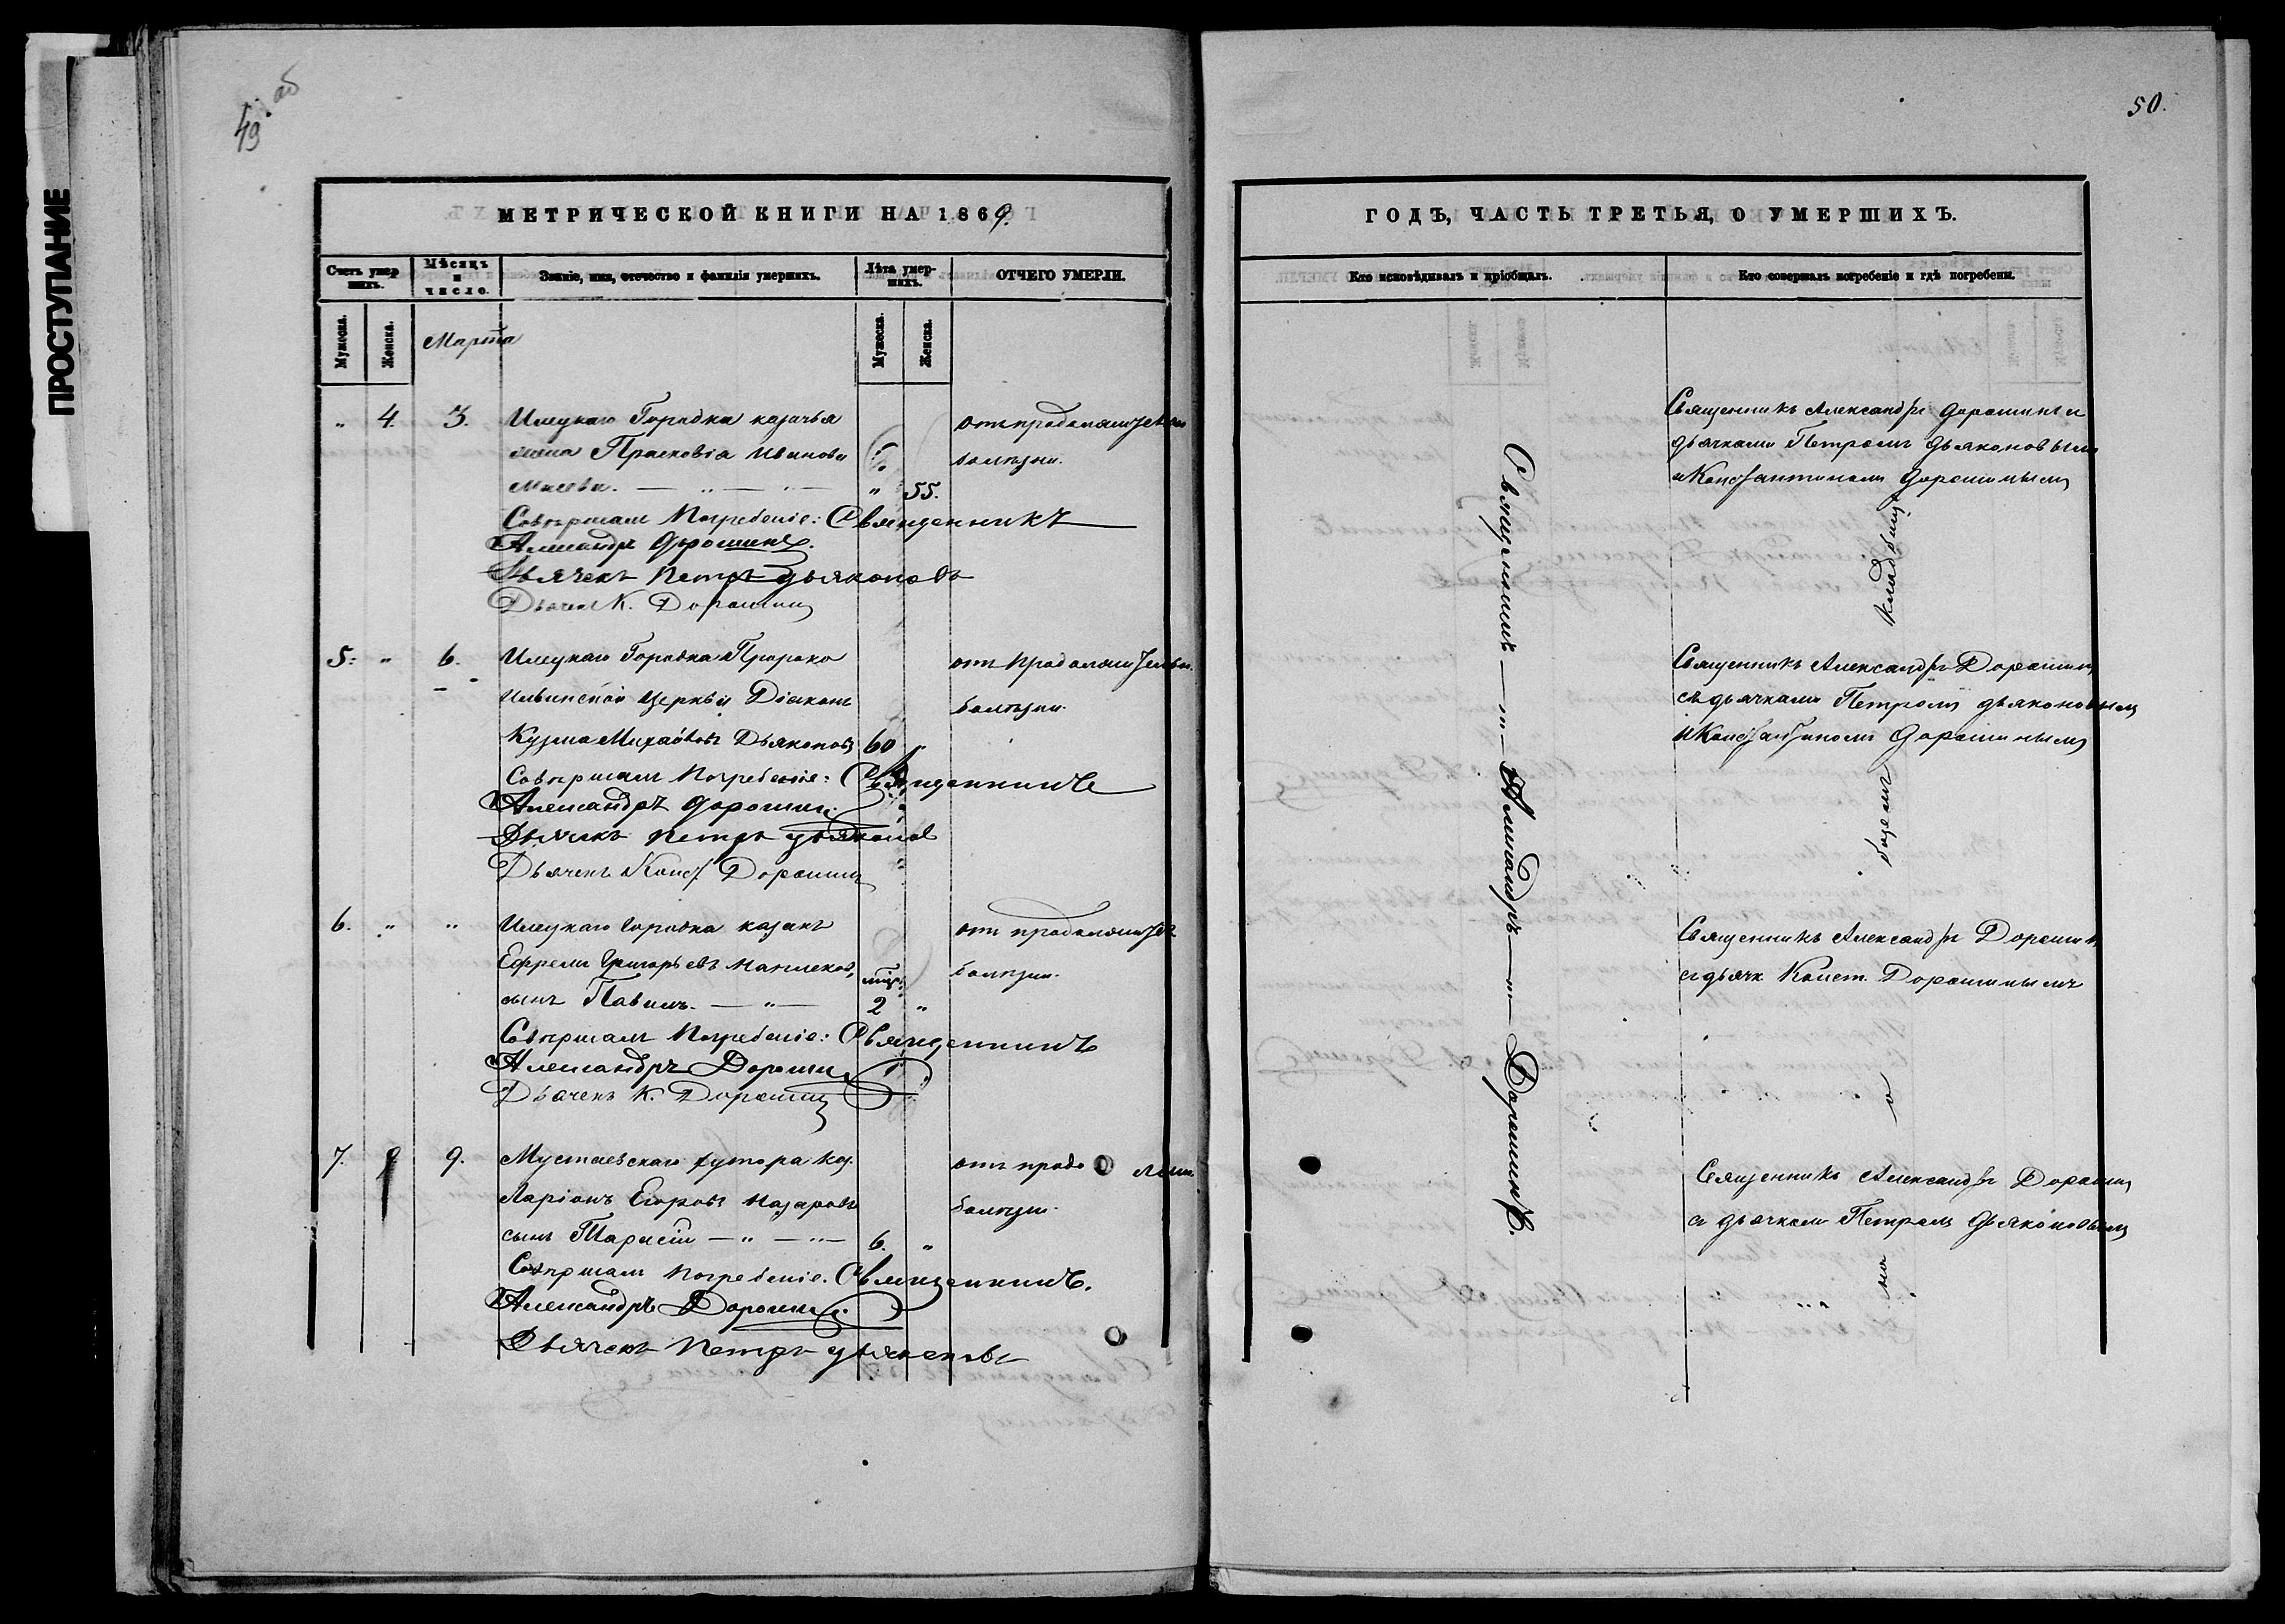 ПРОСТУПАНИЕ
49 об
МЕТРИЧЕСКОЙ КНИГИ НА 1869.
Счетъ умершихъ.
Мѣсяцъ и число.
Званіе, имя, отечество и фамилія умершихъ.
Лѣта умершихъ.
ОТЧЕГО УМЕРЛИ.
Мужеска.
Женска.
Марта
Мужеска.
Женска.
„ 4. 3. Илецкаго Городка казачья отъ продолжител
жена Прасковія Иванова болѣзни.
„ 55.
Совершалъ Погребеніе: Священникъ
Александръ Дорошинъ.
Дьячекъ Петръ Дьяконовъ
Дьячекъ К. Дорошинъ
5. „ 6. Илецкаго Городка Пророко отъ продолжительн.
Ильинской Церкви Діаконъ болѣзни.
Кузма Михайловъ Дьяконовъ 60 „
Совершалъ Погребеніе: Священникъ
Александръ Дорошинъ.
Дьячекъ Петръ Дьяконовъ
Дьячекъ Конст Дорошинъ
6. „ „ Илецкаго Городка казакъ отъ продолжител
Ефремъ Григорьевъ болѣзни.
сынъ Павелъ. — „ — 2 „
Совершалъ Погребеніе: Священникъ
Александръ Дорошинъ
Дьячекъ К. Дорошинъ
7. 9. Мустаевскаго хутора каз. отъ продолж
Ларіонъ Егоровъ Назаровъ болѣзни.
сынъ Тарасій — „ — „ — 6. „
Совершалъ Погребеніе. Священникъ.
Александръ Дорошинъ.
Дьячекъ Петръ Дьяконовъ
50.
ГОДЪ, ЧАСТЬ ТРЕТЬЯ, О УМЕРШИХЪ.
Кто исповѣдывалъ и пріобщалъ.
Кто совершалъ погребеніе и гдѣ погребены.
Священникъ — „ — Александръ — „ — Дорошинъ.
Священникъ Александръ Дорошинъ с
дьячками Петромъ Дьяконовымъ
и Константиномъ Дорошинымъ
Священникъ Александръ Дорошинъ
съ дьячками Петромъ Дьяконовымъ
и Константиномъ Дорошинымъ
Священникъ Александръ Дорошинъ
съ дьячк Конст. Дорошинымъ
Священникъ Александръ Дорошинъ
съ дьячкомъ Петромъ Дьяконовымъ
на общемъ кладбищѣ